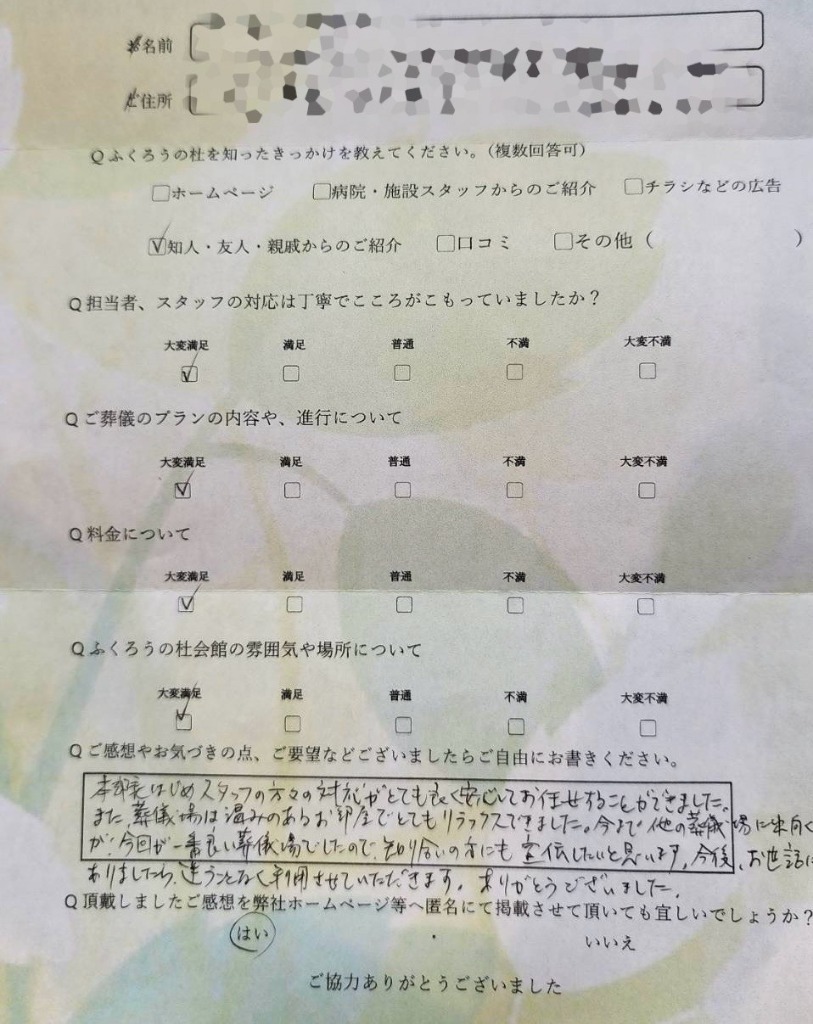 ご名前
ご住所
Qふくろうの杜を知ったきっかけを教えてください。(複数回答可)
□ホームページ □病院・施設スタッフからのご紹介 □チラシなどの広告
☑知人・友人・親戚からのご紹介 □口コミ □その他( )
Q担当者、スタッフの対応は丁寧でこころがこもっていましたか?
大変満足 満足 普通 不満 大変不満
☑ □ □ □ □
Qご葬儀のプランの内容や、進行について
大変満足 満足 普通 不満 大変不満
☑ □ □ □ □
Q料金について
大変満足 満足 普通 不満 大変不満
☑ □ □ □ □
Qふくろうの杜会館の雰囲気や場所について
大変満足 満足 普通 不満 大変不満
☑ □ □ □ □
Qご感想やお気づきの点、ご要望などございましたらご自由にお書きください。
はじめスタッフの方々の対応がとても良く安心してお任せすることができました。
また葬儀場は温みのあるお部屋でとてもリラックスできました。今まで他の葬儀場に出向く
が、今回が一番良い葬儀場でしたので、知り合いの方にも宣伝したいと思います。今後、お世話に
ありましたら、迷うことなく利用させていただきます。ありがとうございました。
Q頂戴しましたご感想を弊社ホームページ等へ匿名にて掲載させて頂いても宜しいでしょうか?
はい ・ いいえ
ご協力ありがとうございました